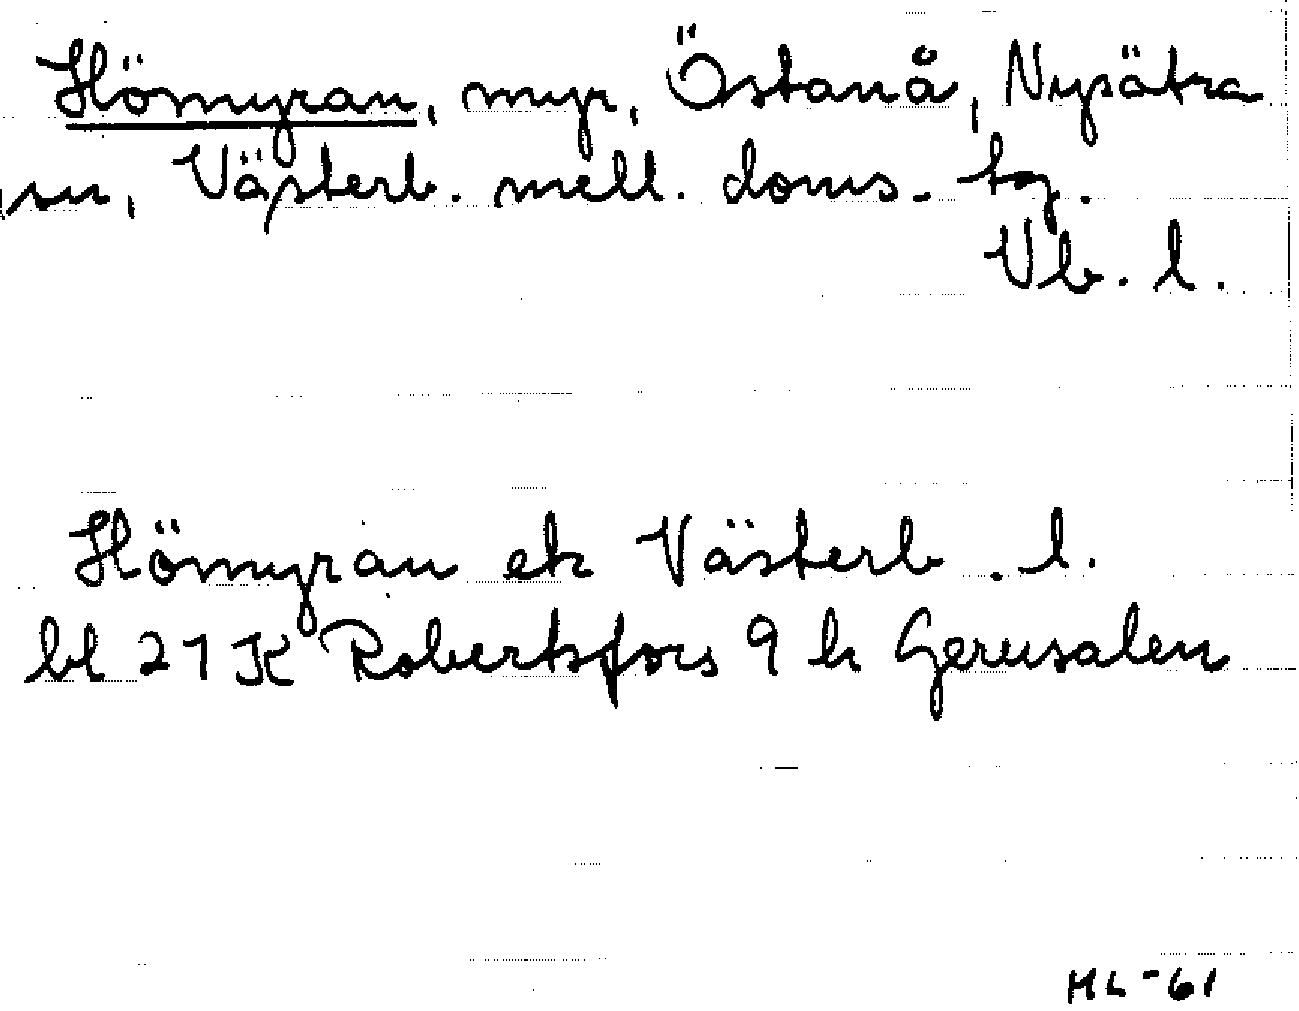 Hömyran, myr, Östanå, Nysätra
sn, Västerb. mell. doms. tg.
Vb. l.
Hömyran ek Västerb. l.
bl 21 K Robertsfors 9 h Gerusalen
HL-61